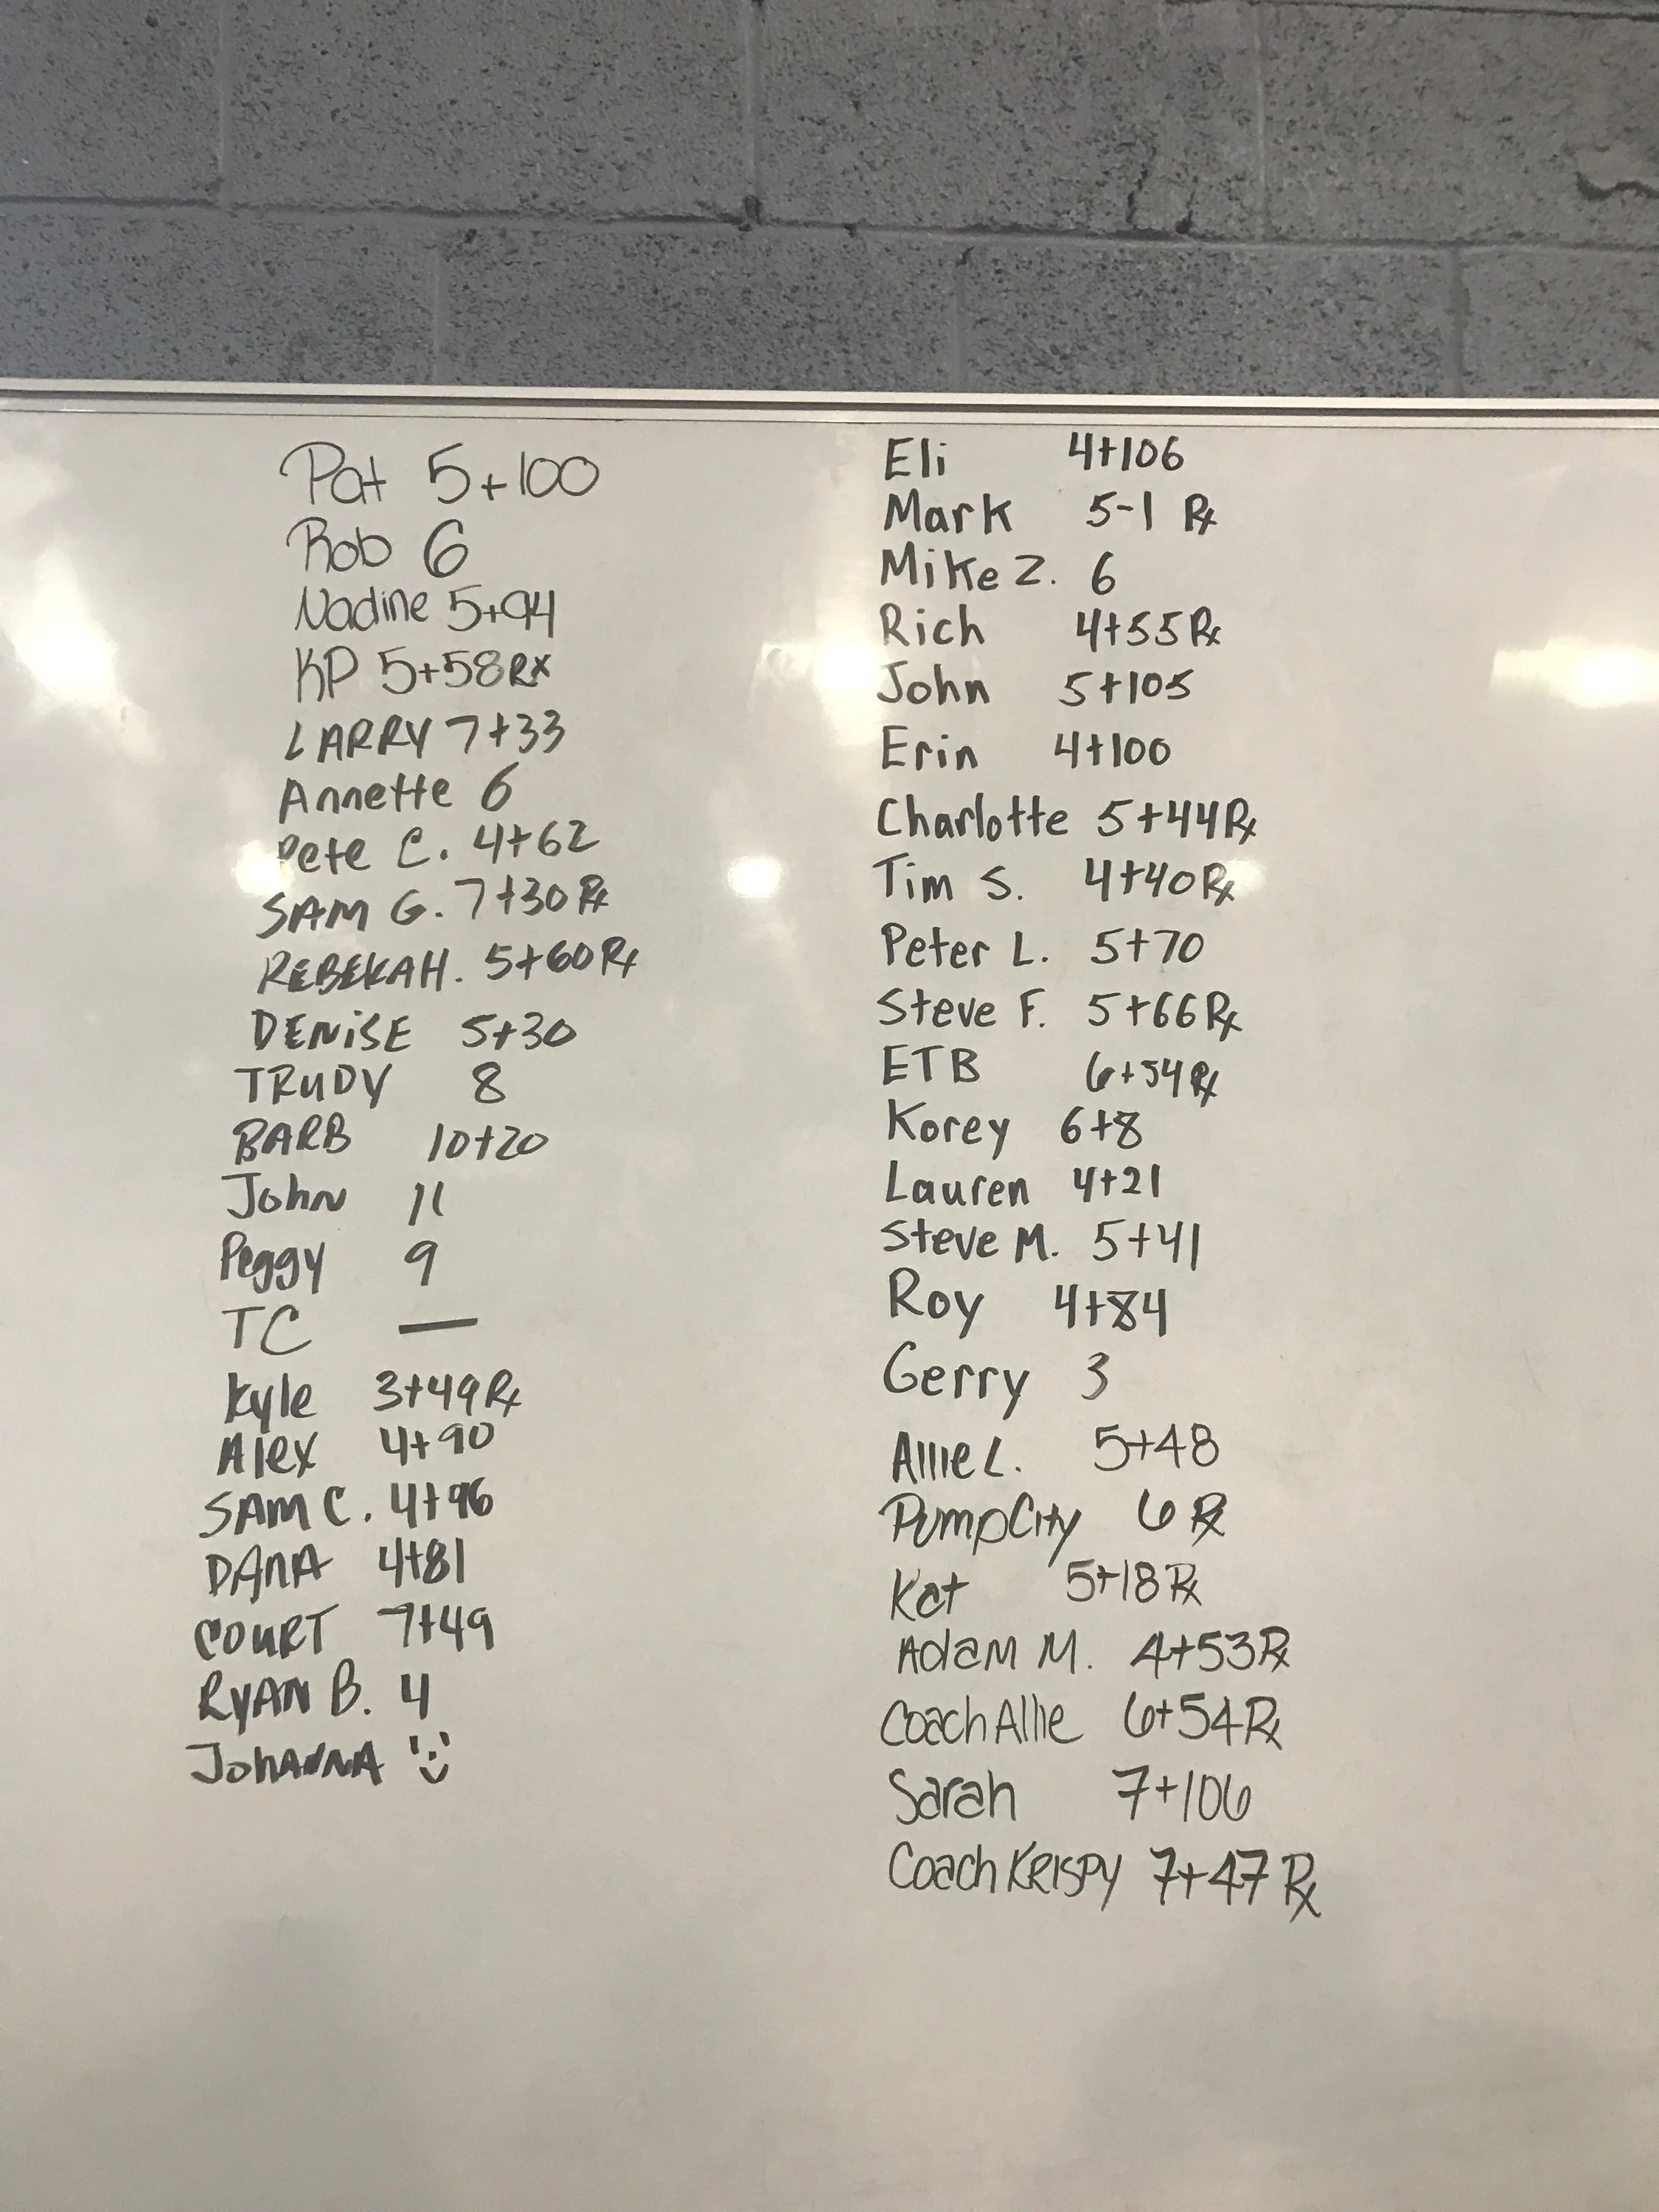 Pat 5+100
Rob 6
Nadine 5+94
KP 5+58 RX
LARRY 7+33
Annette 6
Pete C. 4+62
SAM G. 7+30 Rx
REBEKAH. 5+60 Rx
DENiSE 5+30
TRUDY 8
BARB 10+20
John 11
Peggy 9
TC —
Kyle 3+49 Rx
Alex 4+90
SAM C. 4+96
DANA 4+81
COURT 7+49
RYAN B. 4
JOHANNA
Eli 4+106
Mark 5-1 Rx
Mike Z. 6
Rich 4+55 Rx
John 5+105
Erin 4+100
Charlotte 5+44 Rx
Tim S. 4+40 Rx
Peter L. 5+70
Steve F. 5+66 Rx
ETB 6+54 Rx
Korey 6+8
Lauren 4+21
Steve M. 5+41
Roy 4+84
Gerry 3
Allie L. 5+48
PumpCity 6 Rx
Kat 5+18 Rx
Adam M. 4+53 Rx
Coach Allie 6+54 Rx
Sarah 7+106
Coach KRISPY 7+47 Rx